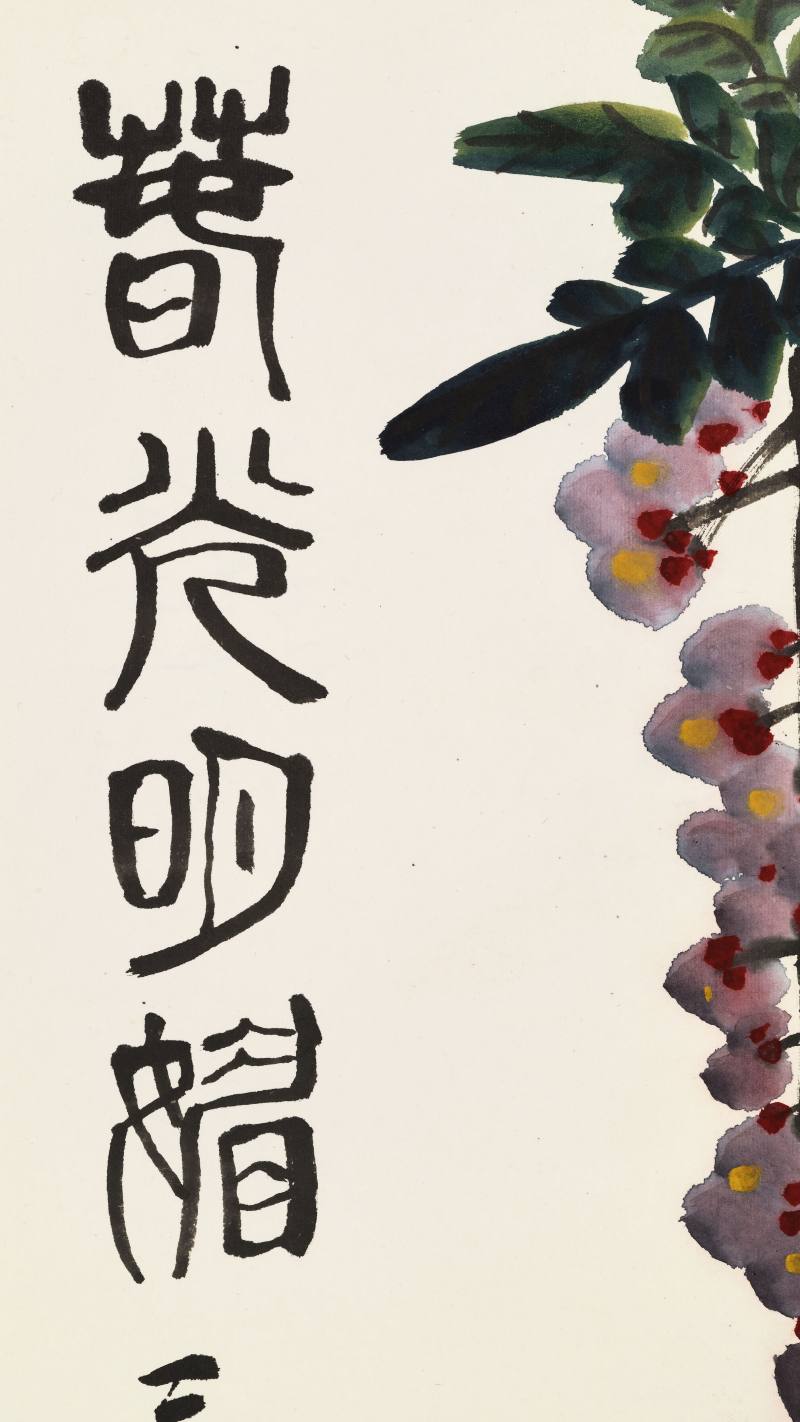 春光明媚